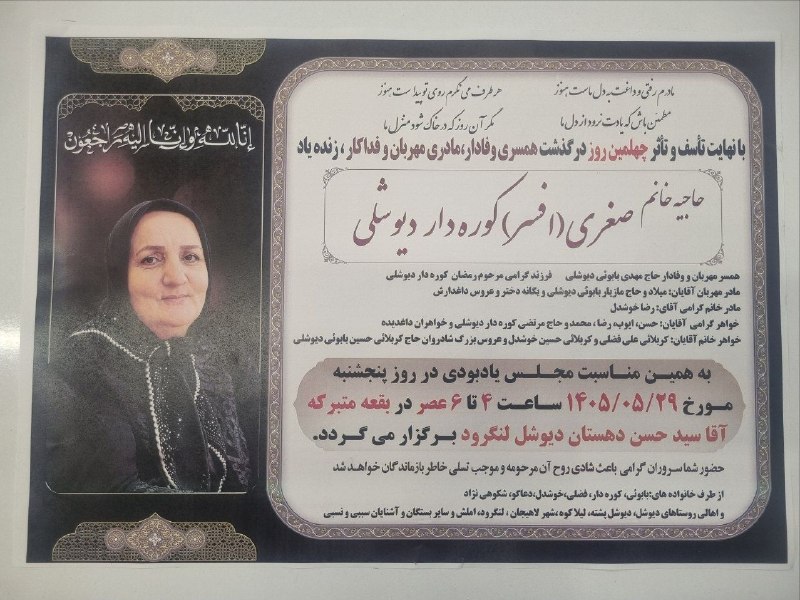 انا لله و انا الیه راجعون
مادرم رفتی و داغت به دل ماست هنوز
هر طرف می نگرم روی تو پیداست هنوز
مطمئن باش که یادت نرود از دل ما
مگر آن روز که در خاک شود منزل ما
با نهایت تأسف و تأثر چهلمین روز درگذشت همسری وفادار، مادری مهربان و فداکار ، زنده یاد
حاجیه خانم صغری (افسر) کوره دار دیوشلی
همسر مهربان و وفادار حاج مهدی بابوئی دیوشلی فرزند گرامی مرحوم رمضان کوره دار دیوشلی
مادر مهربان آقایان: میلاد و حاج مازیار بابوئی دیوشلی و یگانه دختر و عروس داغدارش
مادر خانم گرامی آقای: رضا خوشدل
خواهر گرامی آقایان: حسن، ایوب، رضا، محمد و حاج مرتضی کوره دار دیوشلی و خواهران داغدیده
خواهر خانم آقایان: کربلائی علی فضلی و کربلائی حسین خوشدل و عروس بزرگ شادروان حاج کربلائی حسین بابوئی دیوشلی
به همین مناسبت مجلس یادبودی در روز پنجشنبه
مورخ ۱۴۰۵/۰۵/۲۹ ساعت ۴ تا ۶ عصر در بقعه متبرکه
آقا سید حسن دهستان دیوشل لنگرود برگزار می گردد.
حضور شما سروران گرامی باعث شادی روح آن مرحومه و موجب تسلی خاطر بازماندگان خواهد شد
از طرف خانواده های: بابوئی، کوره دار، فضلی، خوشدل، دماکو، شکوهی نژاد
و اهالی روستاهای دیوشل، دیوشل پشته، لیلا کوه، شهر لاهیجان ، لنگرود، املش و سایر بستگان و آشنایان سببی و نسبی